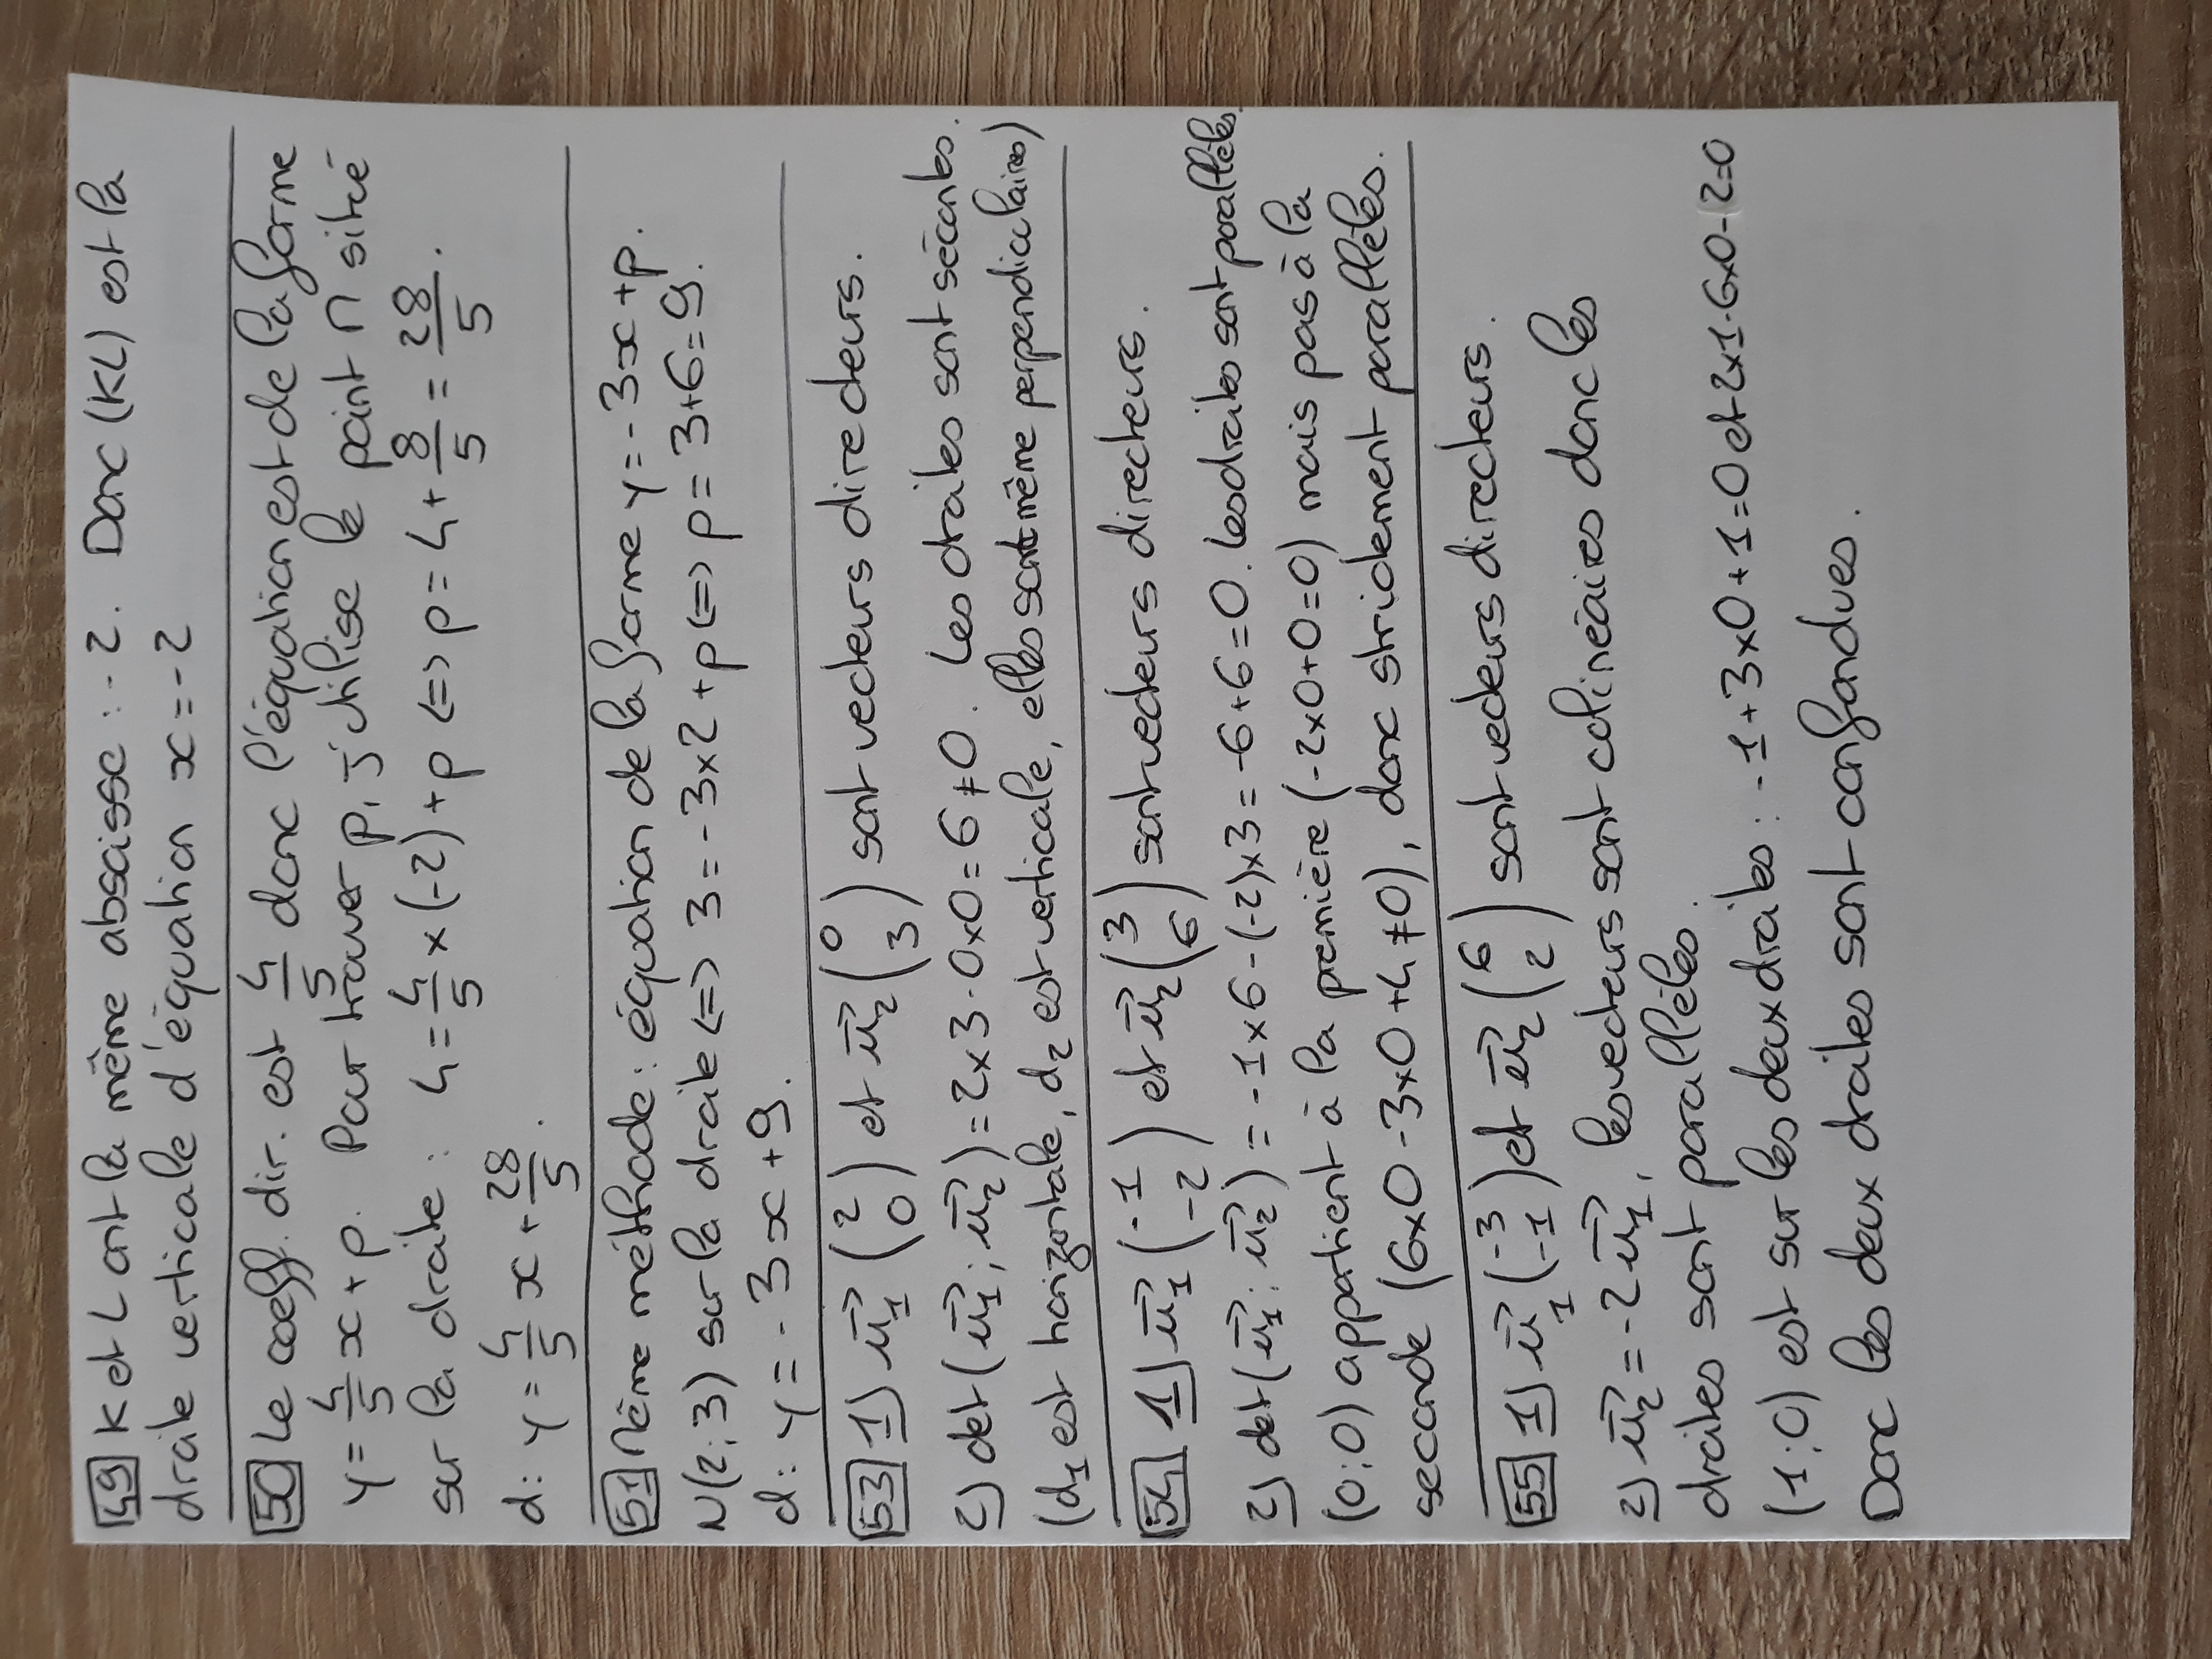 49 K et L ont la même abscisse : -2. Donc (KL) est la
droite verticale d'équation x = -2
50 Le coeff. dir. est 4/5 donc l'équation est de la forme
y = 4/5 x + p. Pour trouver p, j'utilise le point M situé
sur la droite : 4 = 4/5 × (-2) + p <=> p = 4 + 8/5 = 28/5.
d: y = 4/5 x + 28/5.
51 Même méthode : équation de la forme y = -3x + p.
N(2;3) sur la droite <=> 3 = -3×2 + p <=> p = 3+6 = 9.
d: y = -3x + 9.
53 1) u₁→ (2 0) et u₂→ (0 3) sont vecteurs directeurs.
2) det(u₁→ ; u₂→) = 2×3 - 0×0 = 6 ≠ 0. Les droites sont sécantes.
(d₁ est horizontale, d₂ est verticale, elles sont même perpendiculaires)
54 1) u₁→ (-1 -2) et u₂→ (3 6) sont vecteurs directeurs.
2) det(u₁→ ; u₂→) = -1×6 - (-2)×3 = -6+6 = 0. Les droites sont parallèles.
(0;0) appartient à la première (-2×0+0=0) mais pas à la
seconde (6×0 - 3×0 + 4 ≠ 0), donc strictement parallèles.
55 1) u₁→ (-3 -1) et u₂→ (6 2) sont vecteurs directeurs.
2) u₂→ = -2u₁→, les vecteurs sont colinéaires donc les
droites sont parallèles.
(1;0) est sur les deux droites : -1+3×0+1=0 et 2×1-6×0-2=0
Donc les deux droites sont confondues.